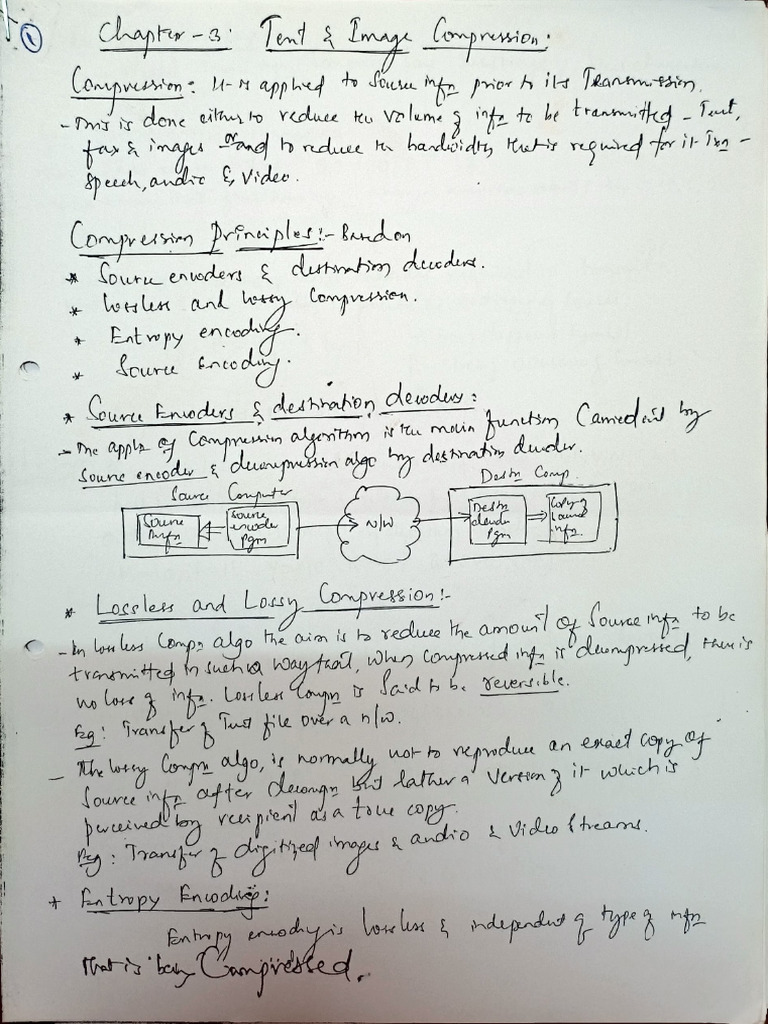 ①
Chapter - 3: Text & Image Compression:
Compression: It is applied to Source infn prior to its Transmission.
- This is done either to reduce the volume of infn to be transmitted - Text,
fax & images or and to reduce the bandwidth that is required for it Txn -
Speech, audio & Video.
Compression Principles:- Based on
* Source encoders & destination decoders.
* lossless and lossy Compression.
* Entropy encoding.
* Source Encoding.
* Source Encoders & destination decoders:
- The appln of Compression algorithm is the main function Carried out by
Source encoder & decompression algo by destination decoder.
Source Computer
Destn Comp.
Source Infn
Source encoder Pgm
N/W
Destn decoder Pgm
Copy of Source infn.
* Lossless and Lossy Compression:-
- In lossless Compn algo the aim is to reduce the amount of Source infn to be
transmitted in such a way that, when compressed infn is decompressed, there is
no loss of infn. Lossless Compn is Said to be reversible.
Eg: Transfer of Text file over a n/w.
- The lossy Compn algo, is normally not to reproduce an exact copy of
Source infn after decompn but rather a version of it which is
perceived by recipient as a true copy.
Eg: Transfer of digitized images & audio & Video Streams.
* Entropy Encoding:
Entropy encoding is lossless & independent of type of infn
that is being Compressed.